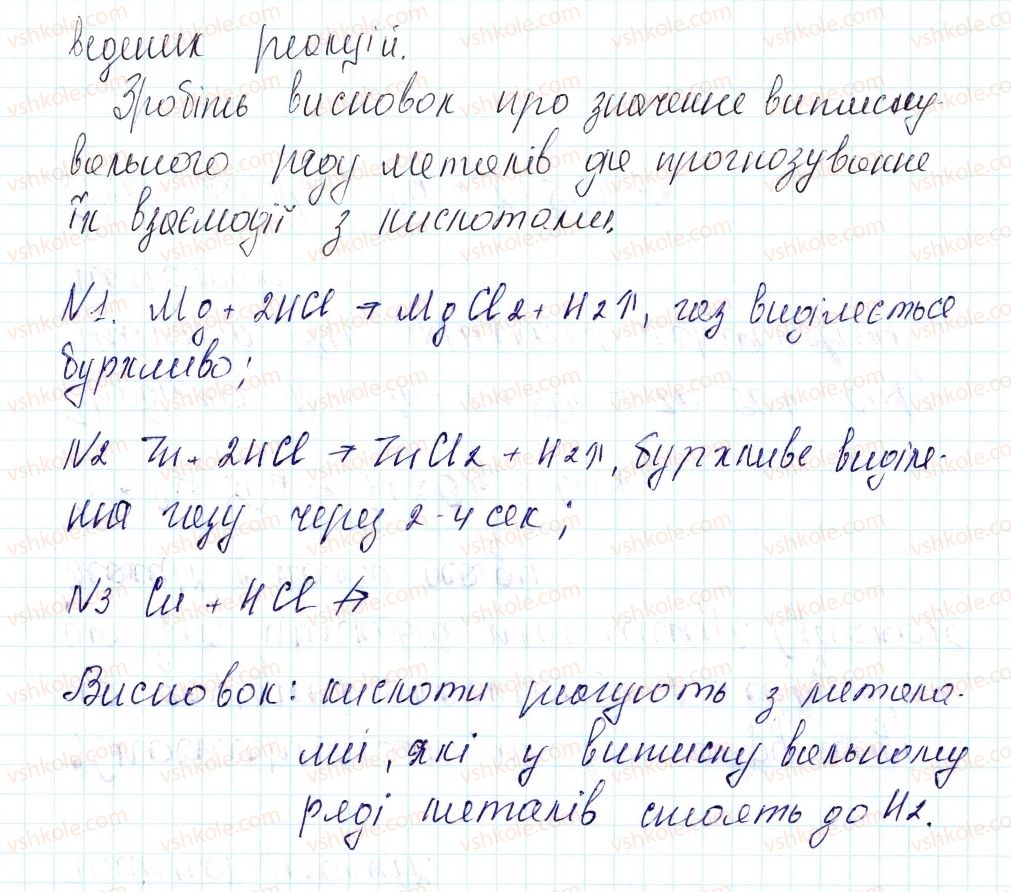 ведених реакцій.
Зробіть висновок про значення витисну-
вального ряду металів для прогнозування
їх взаємодії з кислотами.
N1. Mg + 2HCl → MgCl2 + H2↑, газ виділяється
бурхливо;
N2 Zn + 2HCl → ZnCl2 + H2↑, бурхливе виділе-
ння газу через 2-4 сек;
N3 Cu + HCl ↛
Висновок: кислоти реагують з метала-
ми, які у витиснувальному
ряді металів стоять до H2.